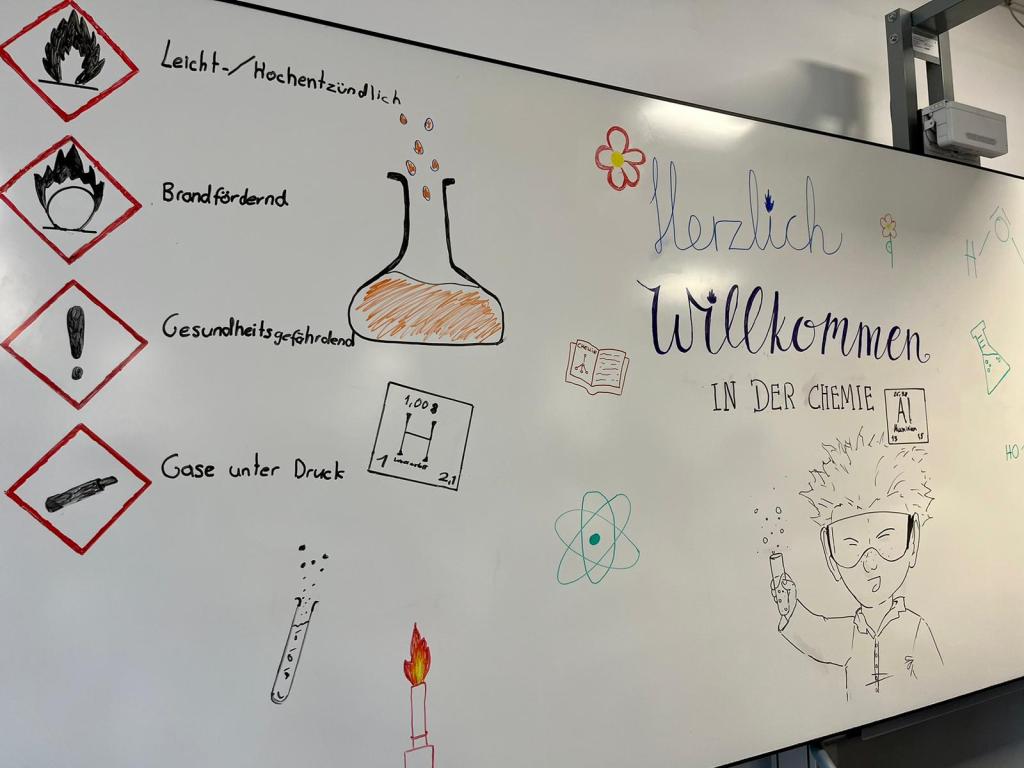 Leicht-/Hochentzündlich
Brandfördernd
Gesundheitsgefährdend
Gase unter Druck
1,008
H
Wasserstoff
1
2,1
Herzlich
Willkommen
IN DER CHEMIE
CHEMIE
Al
13
1.5
H
O
HO